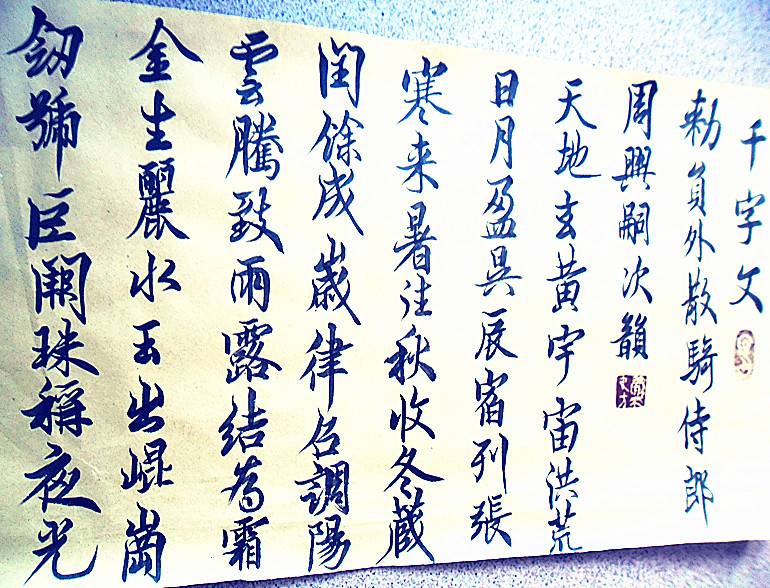 千字文
勅員外散騎侍郎
周興嗣次韻
天地玄黄宇宙洪荒
日月盈昃辰宿列張
寒来暑往秋收冬蔵
閏餘成歳律召調陽
雲騰致雨露結為霜
金生麗水玉出崐崗
釼號巨闕珠稱夜光